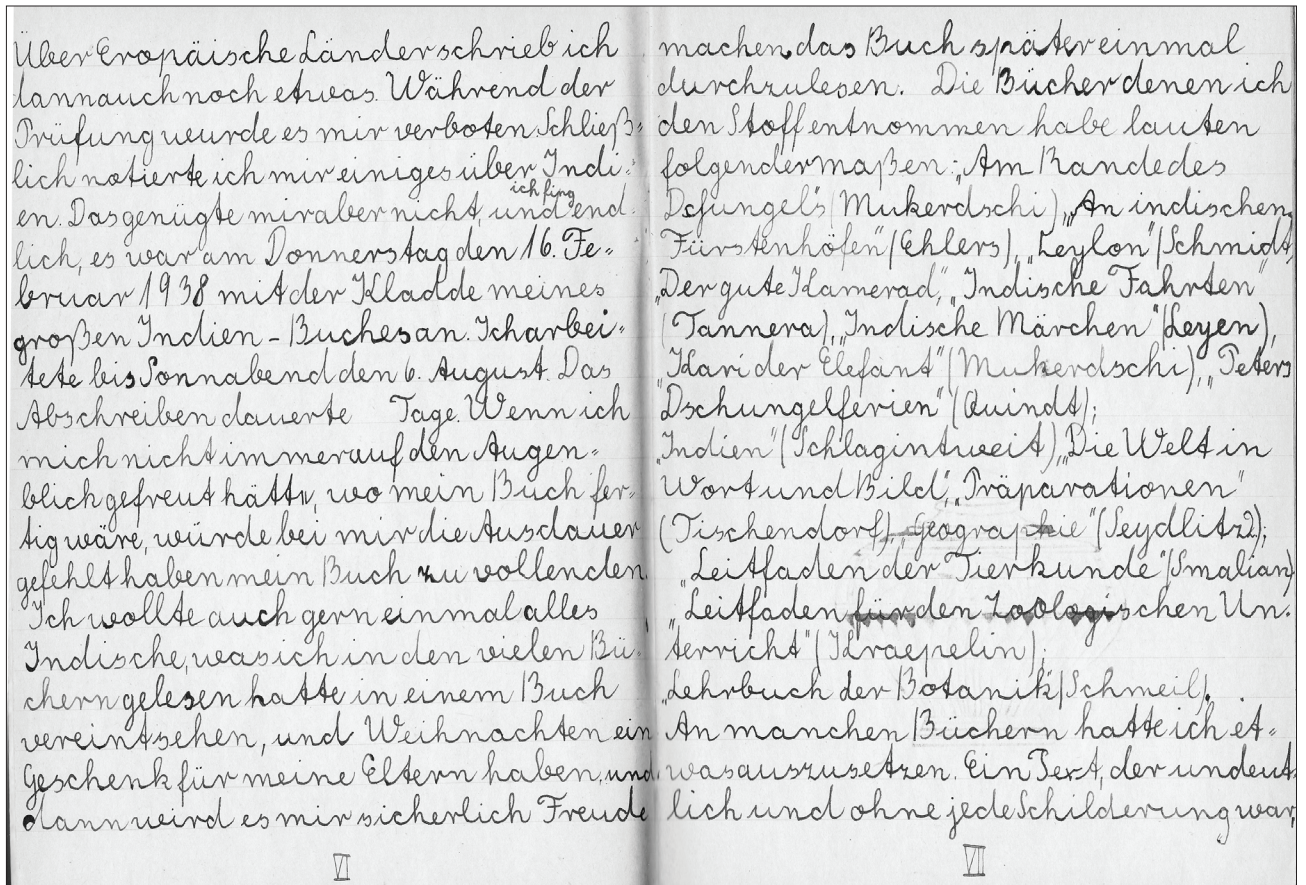 Über Eropäische Länder schrieb ich
dann auch noch etwas. Während der
Prüfung wurde es mir verboten. Schließ-
lich notierte ich mir einiges über Indi-
ich fing
en. Das genügte mir aber nicht, und end-
lich, es war am Donnerstag den 16. Fe-
bruar 1938 mit der Kladde meines
großen Indien - Buches an. Ich arbei-
tete bis Sonnabend den 6. August. Das
Abschreiben dauerte Tage. Wenn ich
mich nicht immer auf den Augen-
blick gefreut hätte, wo mein Buch fer-
tig wäre, würde bei mir die Ausdauer
gefehlt haben mein Buch zu vollenden.
Ich wollte auch gern einmal alles
Indische, was ich in den vielen Bü-
chern gelesen hatte in einem Buch
vereint sehen, und Weihnachten ein
Geschenk für meine Eltern haben, und
dann wird es mir sicherlich Freude
VI
machen das Buch später einmal
durchzulesen. Die Bücher denen ich
den Stoff entnommen habe lauten
folgendermaßen: „Am Rande des
Dsfungels" (Mukerdschi), „An indischen
Fürstenhöfen" (Ehlers), „Leylon" (Schmidt),
„Der gute Kamerad", „Indische Fahrten"
(Tannera), „Indische Märchen" (Leyen),
„Kari der Elefant" (Mukerdschi), „Peters
Dschungelferien" (Quindt);
„Indien" (Schlagintweit), „Die Welt in
Wort und Bild", „Präparationen"
(Tischendorf), „Geographie" (Seydlitz 2);
„Leitfaden der Tierkunde" (Smalian)
„Leitfaden für den Zoologischen Un-
terricht" (Kraepelin);
„Lehrbuch der Botanik" (Schmeil).
An manchen Büchern hatte ich et-
was auszusetzen. Ein Text, der undeut-
lich und ohne jede Schilderung war,
VII